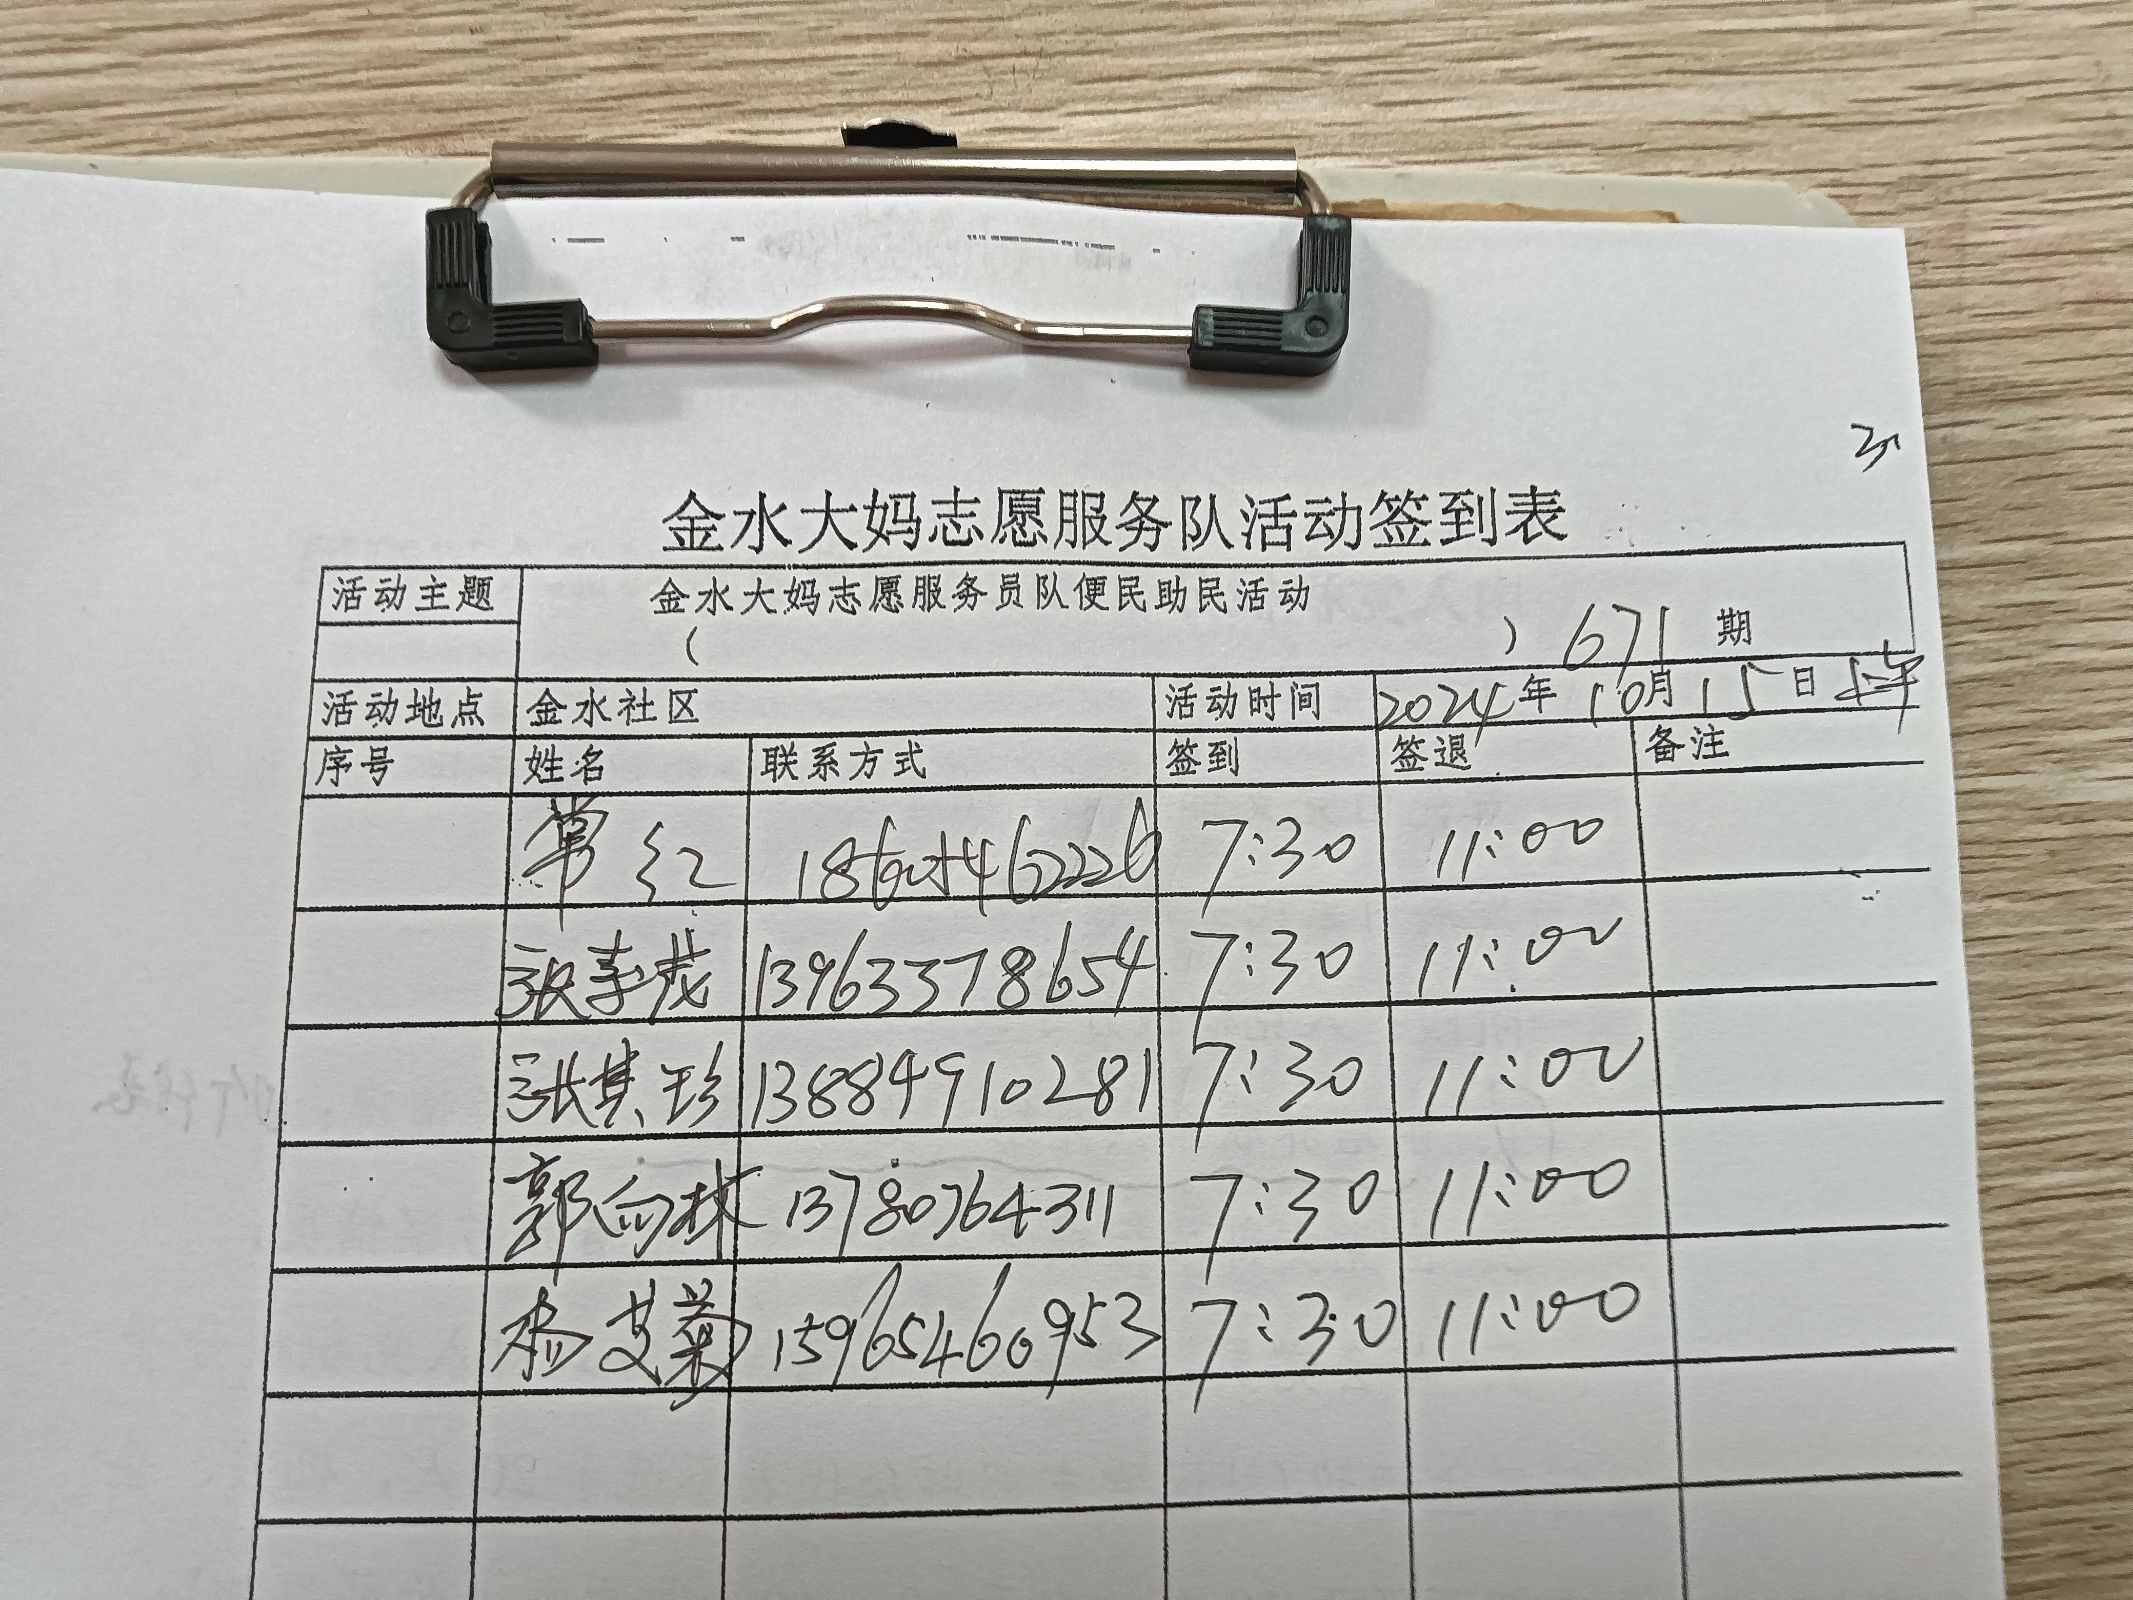 金水大妈志愿服务队活动签到表
活动主题 金水大妈志愿服务员队便民助民活动
( ) 671 期
活动地点 金水社区 活动时间 2024年10月15日上午
序号 姓名 联系方式 签到 签退 备注
常红 18605462226 7:30 11:00
张李茂 13963378654 7:30 11:00
张其珍 13884910281 7:30 11:00
郭向林 13780764311 7:30 11:00
杨艾菊 15965460953 7:30 11:00